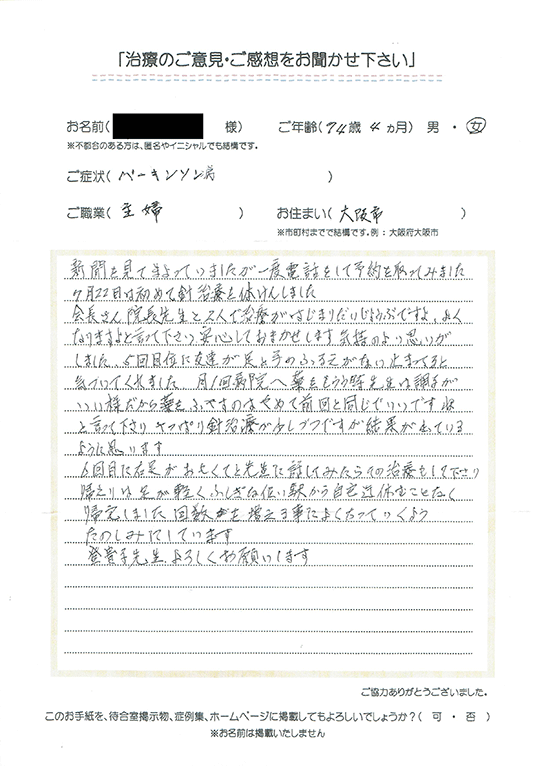 「治療のご意見・ご感想をお聞かせ下さい」
お名前( 様) ご年齢(74歳4ヵ月) 男・女
※不都合のある方は、匿名やイニシャルでも結構です。
ご症状(パーキンソン病)
ご職業(主婦) お住まい(大阪市)
※市町村までで結構です。例:大阪府大阪市
新聞を見てまよっていましたが一度電話をして予約を取ってみました
7月22日は初めて針治療を体けんしました
会長さん院長先生と2人で治療がはじまりだいじょうぶですよ、よく
なりますよと言って下さい安心しておまかせします気持のよい思いが
しました 5回目位に友達が足と手のふるえがない止まってると
気づいてくれました 月1回病院へ薬をもらう時先生は調子が
いい様だから薬をふやすのはやめて前回と同じでいいですね
と言って下さり やっぱり針治療が少しづつですが結果が出ている
ように思います
6回目に右足がおもくてと先生に話してみたらその治療をして下さり
帰えりは足が軽くふしぎな位い駅から自宅迄休むことなく
帰宅しました 回数を増える事によくなっていくよう
たのしみにしています
先生よろしくお願いします
ご協力ありがとうございました。
このお手紙を、待合室掲示物、症例集、ホームページに掲載してもよろしいでしょうか?( 可 ・ 否 )
※お名前は掲載いたしません